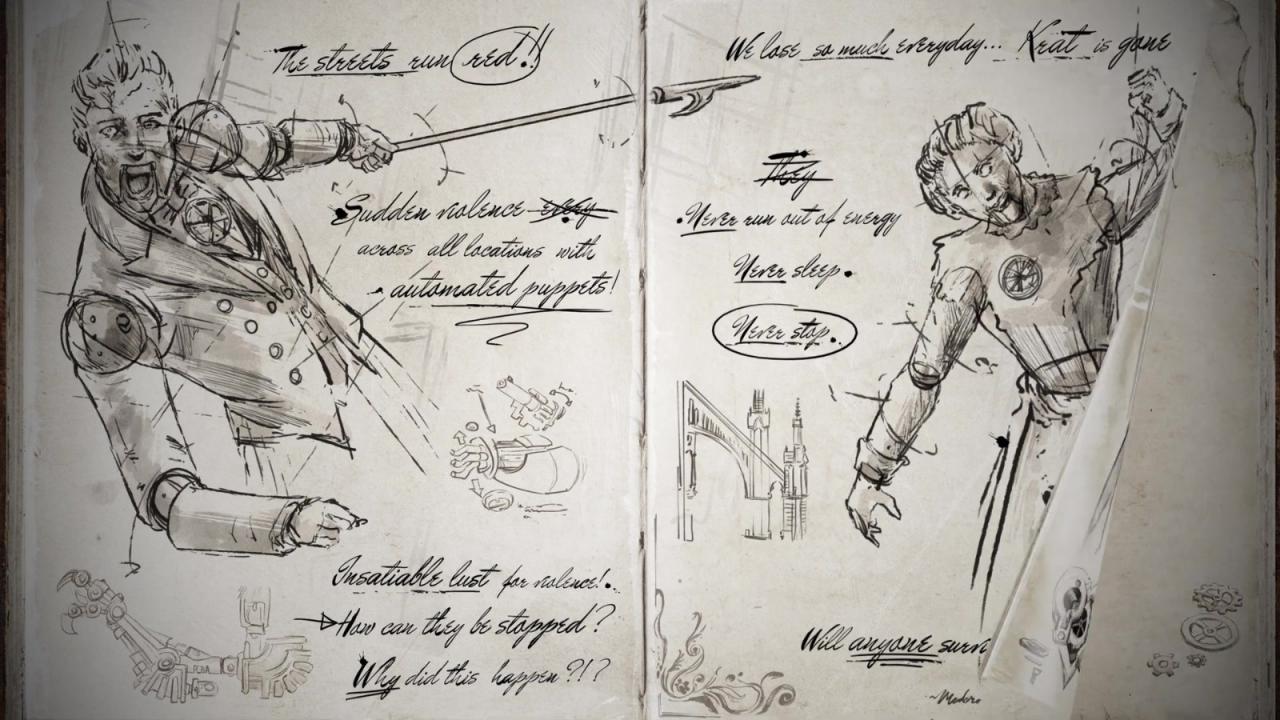 The streets run red!!
Sudden violence every
across all locations with
automated puppets!
Insatiable lust for violence!
How can they be stopped?
Why did this happen?!?
We lose so much everyday... Krat is gone
They
• Never run out of energy
Never sleep.
Never stop.
Will anyone surv